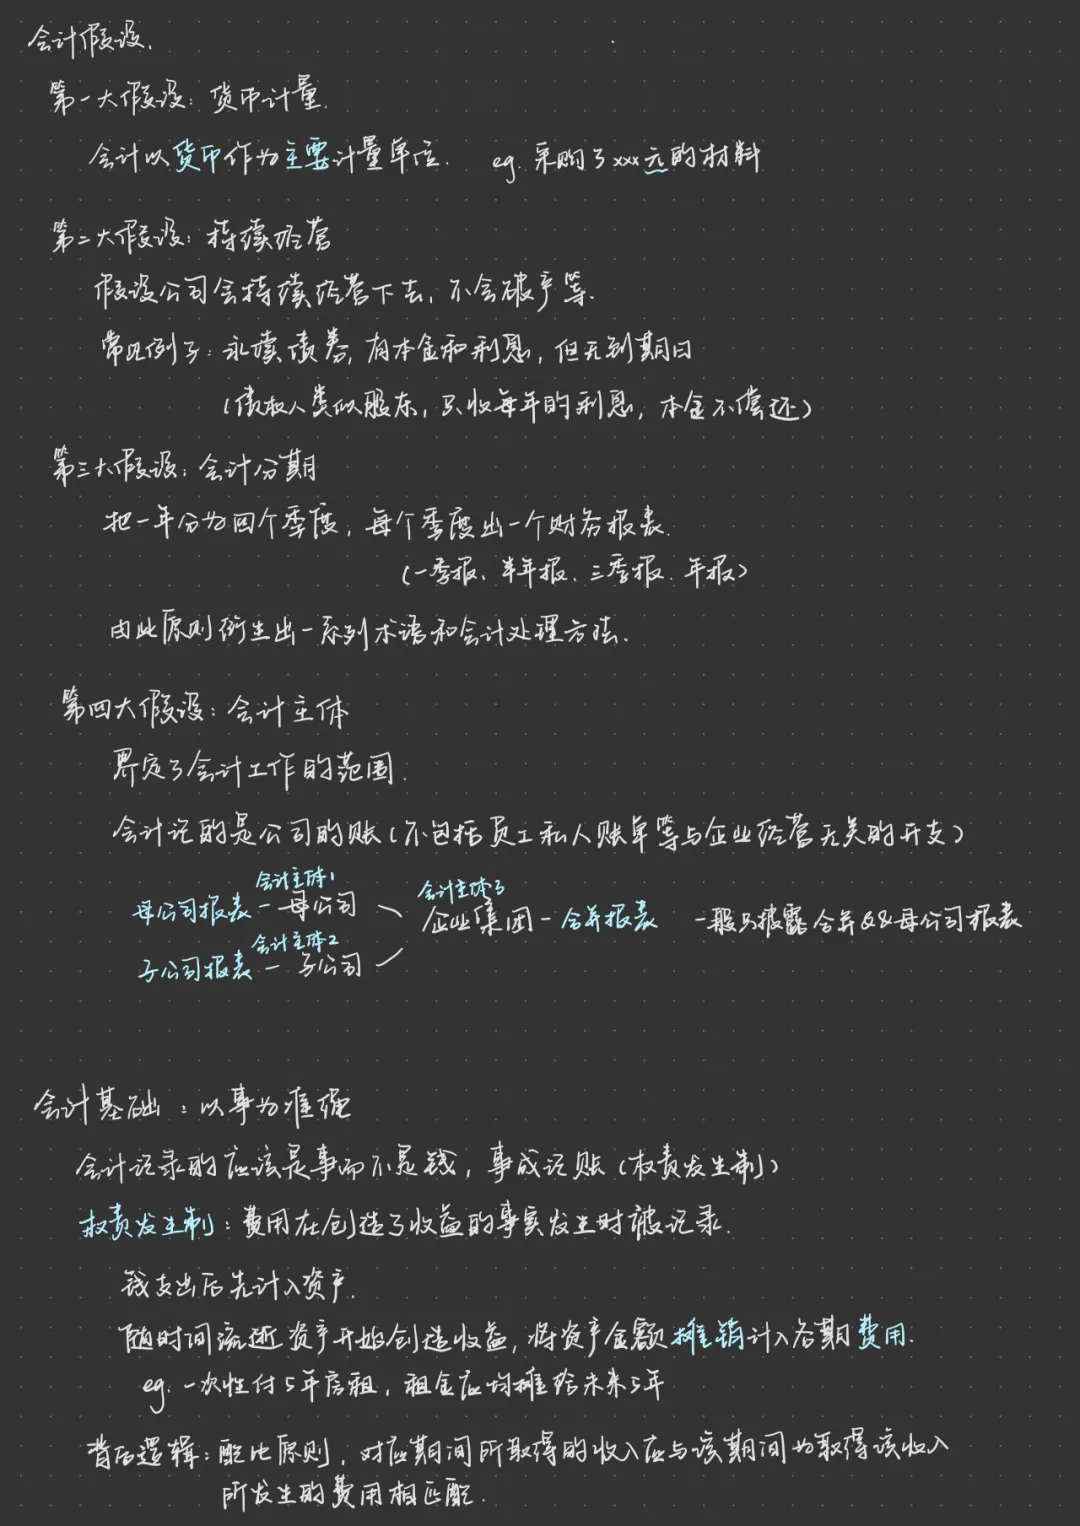 会计假设.
第一大假设: 货币计量.
会计以货币作为主要计量单位. eg. 采购了xxx元的材料
第二大假设: 持续经营
假设公司会持续经营下去, 不会破产等.
常见例子: 永续债券, 有本金和利息, 但无到期日
(债权人类似股东, 只收每年的利息, 本金不偿还)
第三大假设: 会计分期
把一年分为四个季度, 每个季度出一个财务报表.
(一季报、半年报、三季报、年报)
由此原则衍生出一系列术语和会计处理方法.
第四大假设: 会计主体
界定了会计工作的范围.
会计记的是公司的账(不包括员工私人账单等与企业经营无关的开支)
会计主体1 会计主体3
母公司报表 - 母公司 企业集团 - 合并报表 一般只披露合并&&母公司报表
会计主体2
子公司报表 - 子公司
会计基础: 以事为准绳
会计记录的应该是事而不是钱, 事成记账(权责发生制)
权责发生制: 费用在创造了收益的事实发生时被记录.
钱支出后先计入资产.
随时间流逝资产开始创造收益, 将资产金额摊销计入各期费用.
eg. 一次性付5年房租, 租金应均摊给未来5年
背后逻辑: 配比原则, 对应期间所取得的收入应与该期间为取得该收入
所发生的费用相匹配.